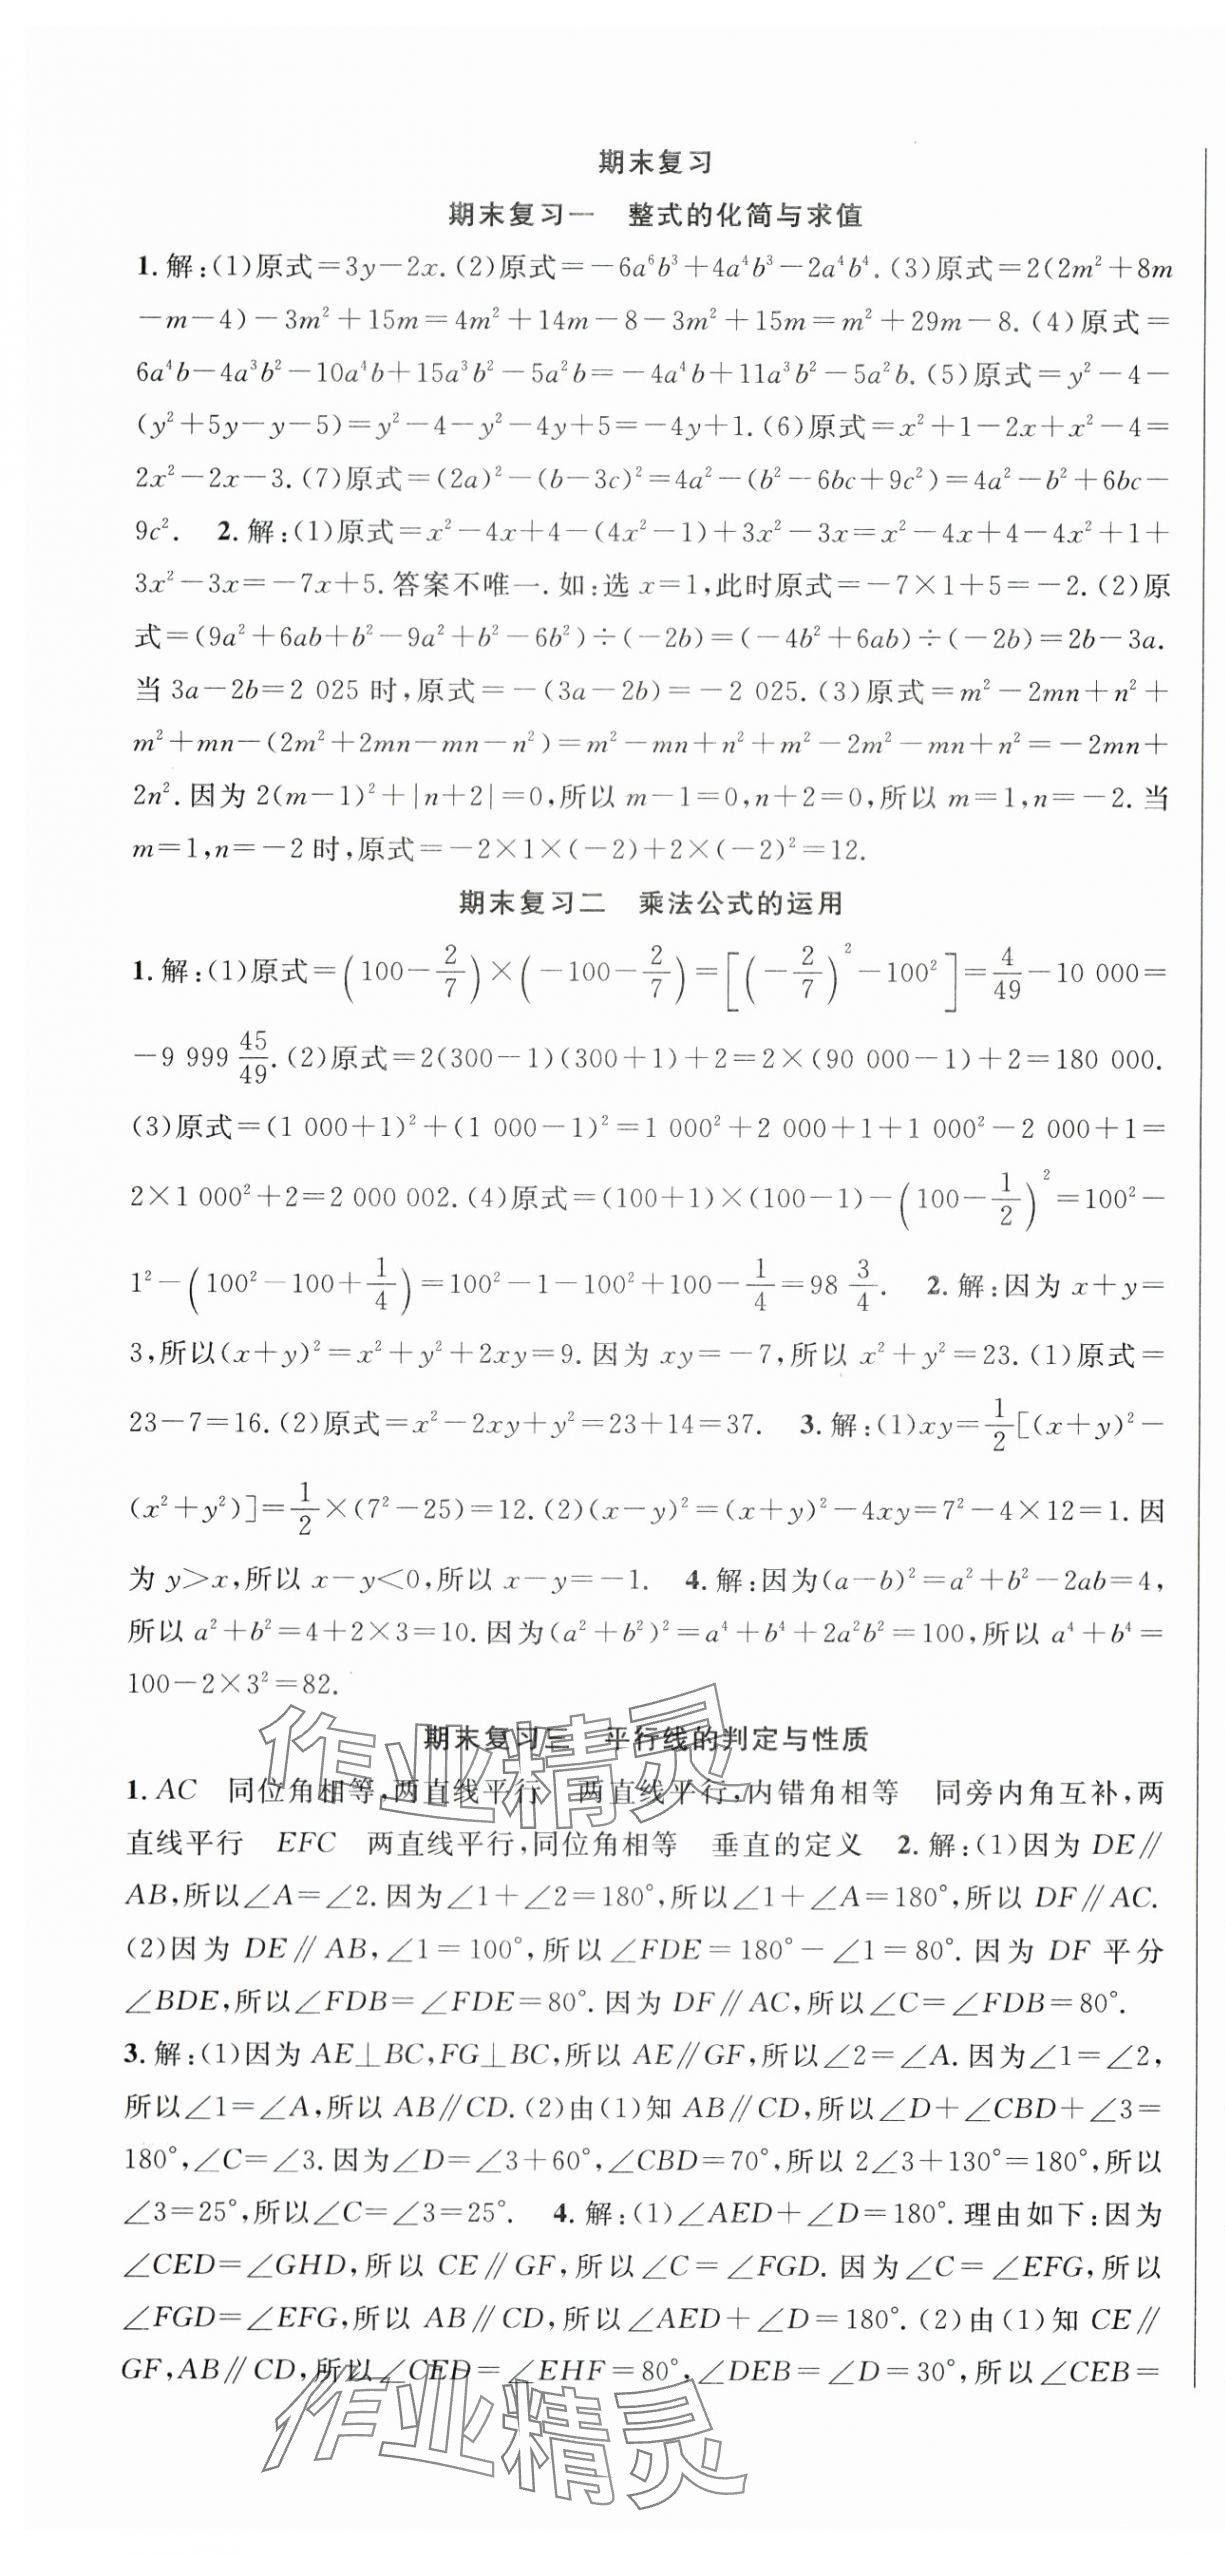 期末复习
期末复习一　整式的化简与求值
1.解:(1)原式=3y-2x.(2)原式=-6a⁶b³+4a⁴b³-2a⁴b⁴.(3)原式=2(2m²+8m
-m-4)-3m²+15m=4m²+14m-8-3m²+15m=m²+29m-8.(4)原式=
6a⁴b-4a³b²-10a⁴b+15a³b²-5a²b=-4a⁴b+11a³b²-5a²b.(5)原式=y²-4-
(y²+5y-y-5)=y²-4-y²-4y+5=-4y+1.(6)原式=x²+1-2x+x²-4=
2x²-2x-3.(7)原式=(2a)²-(b-3c)²=4a²-(b²-6bc+9c²)=4a²-b²+6bc-
9c².　2.解:(1)原式=x²-4x+4-(4x²-1)+3x²-3x=x²-4x+4-4x²+1+
3x²-3x=-7x+5.答案不唯一.如:选 x=1,此时原式=-7×1+5=-2.(2)原
式=(9a²+6ab+b²-9a²+b²-6b²)÷(-2b)=(-4b²+6ab)÷(-2b)=2b-3a.
当 3a-2b=2 025 时,原式=-(3a-2b)=-2 025.(3)原式=m²-2mn+n²+
m²+mn-(2m²+2mn-mn-n²)=m²-mn+n²+m²-2m²-mn+n²=-2mn+
2n².因为 2(m-1)²+|n+2|=0,所以 m-1=0,n+2=0,所以 m=1,n=-2.当
m=1,n=-2 时,原式=-2×1×(-2)+2×(-2)²=12.
期末复习二　乘法公式的运用
1.解:(1)原式=(100-2/7)×(-100-2/7)=[(-2/7)²-100²]=4/49-10 000=
-9 999 45/49.(2)原式=2(300-1)(300+1)+2=2×(90 000-1)+2=180 000.
(3)原式=(1 000+1)²+(1 000-1)²=1 000²+2 000+1+1 000²-2 000+1=
2×1 000²+2=2 000 002.(4)原式=(100+1)×(100-1)-(100-1/2)²=100²-
1²-(100²-100+1/4)=100²-1-100²+100-1/4=98 3/4.　2.解:因为 x+y=
3,所以(x+y)²=x²+y²+2xy=9.因为 xy=-7,所以 x²+y²=23.(1)原式=
23-7=16.(2)原式=x²-2xy+y²=23+14=37.　3.解:(1)xy=1/2[(x+y)²-
(x²+y²)]=1/2×(7²-25)=12.(2)(x-y)²=(x+y)²-4xy=7²-4×12=1.因
为 y>x,所以 x-y<0,所以 x-y=-1.　4.解:因为(a-b)²=a²+b²-2ab=4,
所以 a²+b²=4+2×3=10.因为(a²+b²)²=a⁴+b⁴+2a²b²=100,所以 a⁴+b⁴=
100-2×3²=82.
期末复习三　平行线的判定与性质
1.AC　同位角相等,两直线平行　两直线平行,内错角相等　同旁内角互补,两
直线平行　EFC　两直线平行,同位角相等　垂直的定义　2.解:(1)因为 DE∥
AB,所以∠A=∠2.因为∠1+∠2=180°,所以∠1+∠A=180°,所以 DF∥AC.
(2)因为 DE∥AB,∠1=100°,所以∠FDE=180°-∠1=80°.因为 DF 平分
∠BDE,所以∠FDB=∠FDE=80°.因为 DF∥AC,所以∠C=∠FDB=80°.
3.解:(1)因为 AE⊥BC,FG⊥BC,所以 AE∥GF,所以∠2=∠A.因为∠1=∠2,
所以∠1=∠A,所以 AB∥CD.(2)由(1)知 AB∥CD,所以∠D+∠CBD+∠3=
180°,∠C=∠3.因为∠D=∠3+60°,∠CBD=70°,所以 2∠3+130°=180°,所以
∠3=25°,所以∠C=∠3=25°.　4.解:(1)∠AED+∠D=180°.理由如下:因为
∠CED=∠GHD,所以 CE∥GF,所以∠C=∠FGD.因为∠C=∠EFG,所以
∠FGD=∠EFG,所以 AB∥CD,所以∠AED+∠D=180°.(2)由(1)知 CE∥
GF,AB∥CD,所以∠CED=∠EHF=80°,∠DEB=∠D=30°,所以∠CEB=
作业精灵
作业精灵